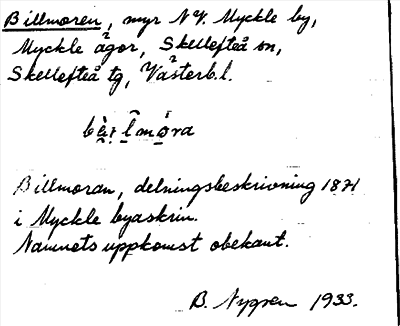 Billmoren, myr N.V. Myckle by,
Myckle ägor, Skellefteå sn,
Skellefteå tg, Västerb. l.
Billmoran, delningsbeskrivning 1871
i Myckle byaskrin.
Namnets uppkomst obekant.
B. Nygren 1933.